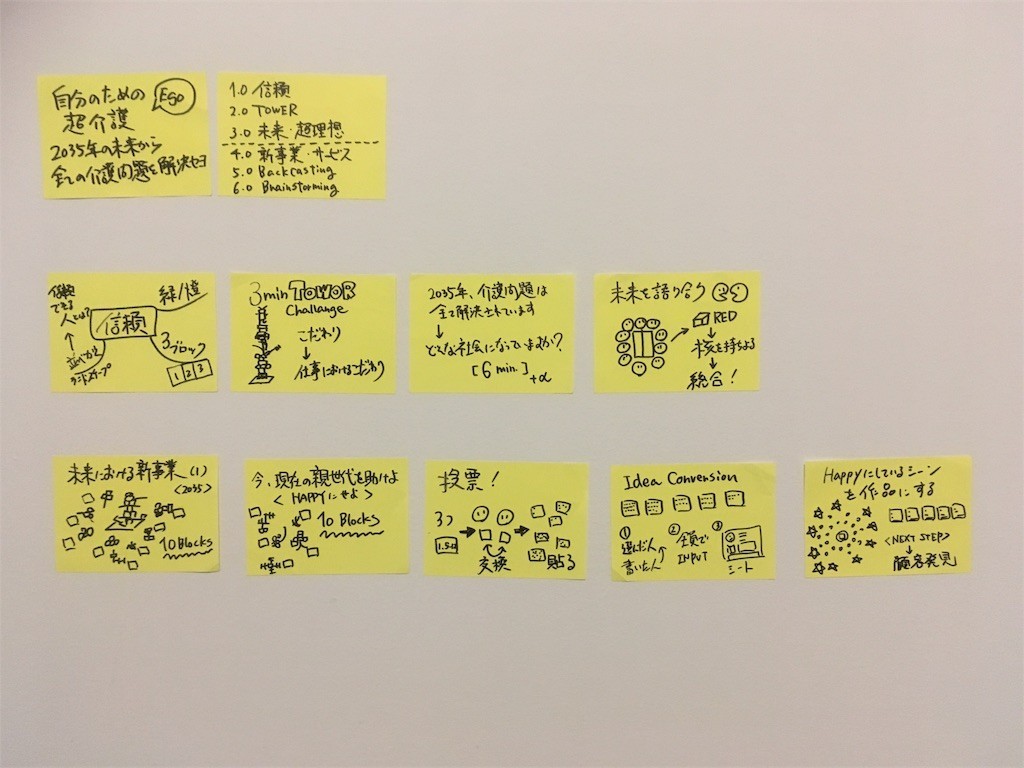 自分のための
EGO
超介護
2035年の未来から
全ての介護問題を解決セヨ
1.0 信頼
2.0 TOWER
3.0 未来・超理想
4.0 新事業・サービス
5.0 Backcasting
6.0 Brainstorming
信頼
できる
人とは?
緑/橙
信頼
3ブロック
並べかえ
ランドスケープ
1 2 3
3min TOWOR
Challange
こだわり
仕事におけるこだわり
2035年、介護問題は
全て解決されています
どんな社会になっていますか?
[6 min.]
+α
未来を語り合う
RED
核を持ちよる
統合!
未来における新事業 (1)
<2035>
10 Blocks
今、現在の親世代を助けよ
< HAPPYにせよ >
10 Blocks
投票!
3つ
交換
貼る
Idea Conversion
① ② ③
選んだ人
書いた人
全員で
INPUT
シート
Happyにしているシーン
を作品にする
@
<NEXT STEP>
顧客発見